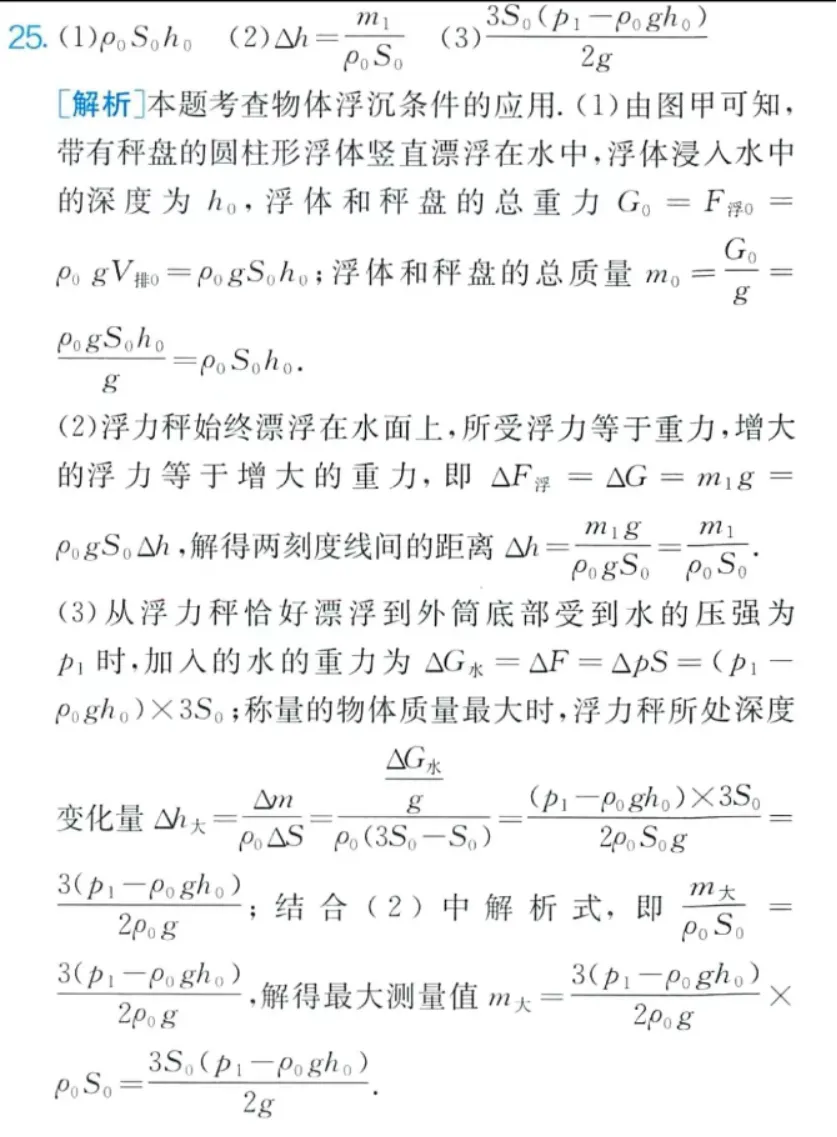 25. (1)ρ₀S₀h₀ (2)Δh=m₁/(ρ₀S₀) (3)3S₀(p₁-ρ₀gh₀)/(2g)
[解析]本题考查物体浮沉条件的应用.(1)由图甲可知,
带有秤盘的圆柱形浮体竖直漂浮在水中,浮体浸入水中
的深度为 h₀,浮体和秤盘的总重力 G₀ = F浮₀ =
ρ₀gV排₀=ρ₀gS₀h₀;浮体和秤盘的总质量 m₀ = G₀/g =
ρ₀gS₀h₀/g=ρ₀S₀h₀.
(2)浮力秤始终漂浮在水面上,所受浮力等于重力,增大
的浮力等于增大的重力,即 ΔF浮 = ΔG = m₁g =
ρ₀gS₀Δh,解得两刻度线间的距离 Δh=m₁g/(ρ₀gS₀)=m₁/(ρ₀S₀).
(3)从浮力秤恰好漂浮到外筒底部受到水的压强为
p₁ 时,加入的水的重力为 ΔG水=ΔF=ΔpS=(p₁-
ρ₀gh₀)×3S₀;称量的物体质量最大时,浮力秤所处深度
变化量 Δh大=Δm/(ρ₀ΔS)=(ΔG水/g)/(ρ₀(3S₀-S₀))=(p₁-ρ₀gh₀)×3S₀/(2ρ₀S₀g)=
3(p₁-ρ₀gh₀)/(2ρ₀g);结合(2)中解析式,即 m大/(ρ₀S₀) =
3(p₁-ρ₀gh₀)/(2ρ₀g),解得最大测量值 m大=3(p₁-ρ₀gh₀)/(2ρ₀g)×
ρ₀S₀=3S₀(p₁-ρ₀gh₀)/(2g).